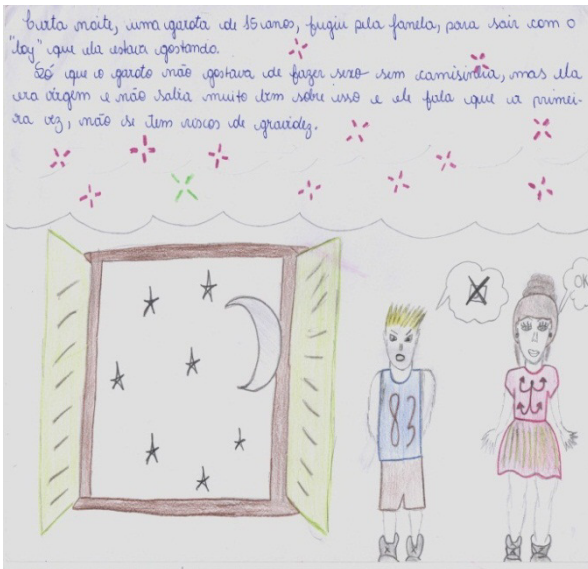 Certa noite, uma garota de 15 anos, fugiu pela janela, para sair com o
"boy" que ela estava gostando.
Só que o garoto não gostava de fazer sexo sem camisinha, mas ela
era virgem e não sabia muito bem sobre isso e ele fala que a primei-
ra vez, não se tem riscos de gravidez.
83
OK